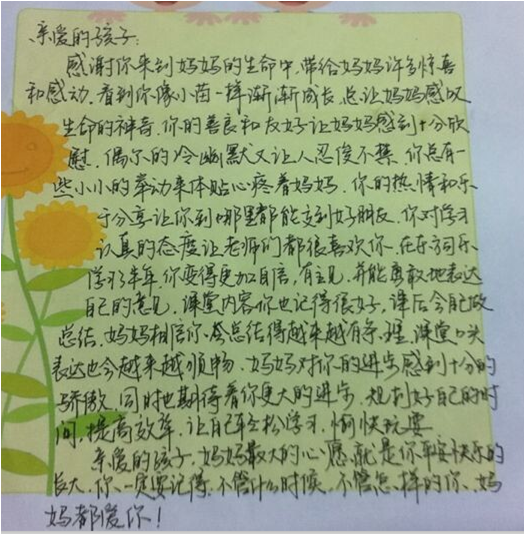 亲爱的孩子:
感谢你来到妈妈的生命中,带给妈妈许多惊喜
和感动.看到你像小苗一样渐渐成长,总让妈妈感叹
生命的神奇.你的善良和友好让妈妈感到十分欣
慰.偶尔的冷幽默又让人忍俊不禁.你总有一
些小小的举动来体贴心疼着妈妈.你的热情和乐
于分享让你到哪里都能交到好朋友.你对学习
认真的态度让老师们都很喜欢你.在东方司乐
学习3半年,你变得更加自信,有主见,并能勇敢地表达
自己的意见.课堂内容你也记得很好,课后会自己做
总结.妈妈相信你会总结得越来越有条理.课堂口头
表达也会越来越顺畅.妈妈对你的进步感到十分的
骄傲.同时也期待着你更大的进步.规划好自己的时
间,提高效率.让自己轻松学习,愉快玩耍
亲爱的孩子,妈妈最大的心愿就是你平安快乐的
长大.你一定要记得,不管什么时候,不管怎样的你,妈
妈都爱你!